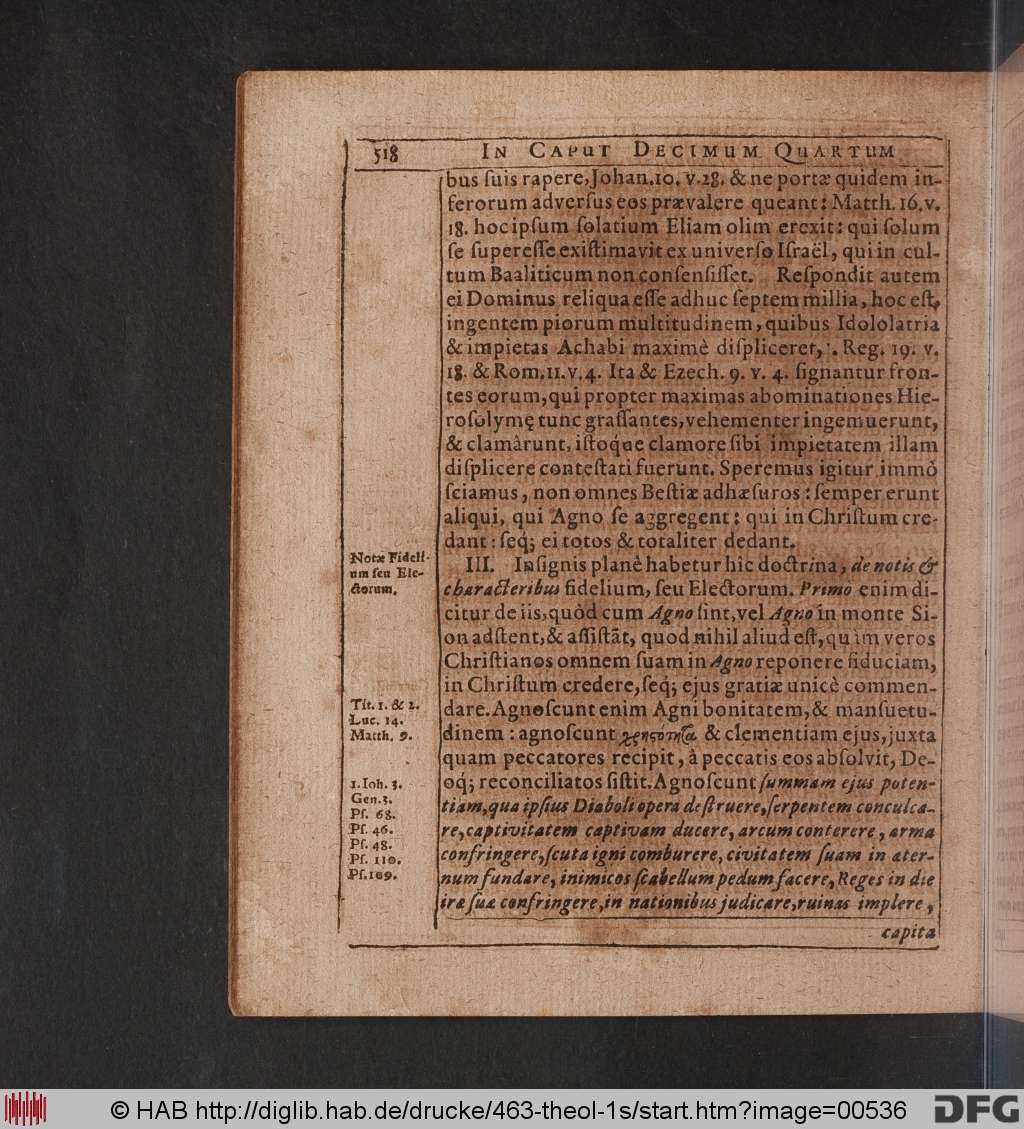 518 IN CAPUT DECIMUM QUARTUM
bus ſuis rapere, Johan.10. v.28. & ne portæ quidem in-
ferorum adverſus eos prævalere queant: Matth. 16. v.
18. hoc ipſum ſolatium Eliam olim erexit: qui ſolum
ſe ſupereſſe exiſtimavit ex univerſo Iſraël, qui in cul-
tum Baaliticum non conſenſiſſet. Reſpondit autem
ei Dominus reliqua eſſe adhuc ſeptem millia, hoc eſt,
ingentem piorum multitudinem, quibus Idololatria
& impietas Achabi maximè diſpliceret, 1. Reg. 19. v.
18. & Rom.11.v.4. Ita & Ezech. 9. v. 4. ſignantur fron-
tes eorum, qui propter maximas abominationes Hie-
roſolymę tunc graſſantes, vehementer ingemuerunt,
& clamârunt, iſtoque clamore ſibi impietatem illam
diſplicere conteſtati fuerunt. Speremus igitur immò
ſciamus, non omnes Beſtiæ adhæſuros: ſemper erunt
aliqui, qui Agno ſe aggregent: qui in Chriſtum cre-
dant: ſeq; ei totos & totaliter dedant.
Notæ Fideli-
um ſeu Ele-
ctorum.
III. Inſignis planè habetur hîc doctrina, de notis &
characteribus fidelium, ſeu Electorum. Primò enim di-
citur de iis, quòd cum Agno ſint, vel Agno in monte Si-
on adſtent, & aſſiſtãt, quod nihil aliud eſt, quàm veros
Chriſtianos omnem ſuam in Agno reponere fiduciam,
in Chriſtum credere, ſeq; ejus gratiæ unicè commen-
Tit. 1. & 2.
Luc. 14.
Matth. 9.
dare. Agnoſcunt enim Agni bonitatem, & manſuetu-
dinem: agnoſcunt χρηςότητα & clementiam ejus, juxta
quam peccatores recipit, à peccatis eos abſolvit, De-
1. Ioh. 3.
Gen. 3.
Pſ. 68.
Pſ. 46.
Pſ. 48.
Pſ. 110.
Pſ. 109.
oq; reconciliatos ſiſtit. Agnoſcunt ſummam ejus poten-
tiam, qua ipſius Diaboli opera deſtruere, ſerpentem conculca-
re, captivitatem captivam ducere, arcum conterere, arma
confringere, ſcuta igni comburere, civitatem ſuam in æter-
num fundare, inimicos ſcabellum pedum facere, Reges in die
iræ ſuæ confringere, in nationibus judicare, ruinas implere,
capita
© HAB http://diglib.hab.de/drucke/463-theol-1s/start.htm?image=00536 DFG